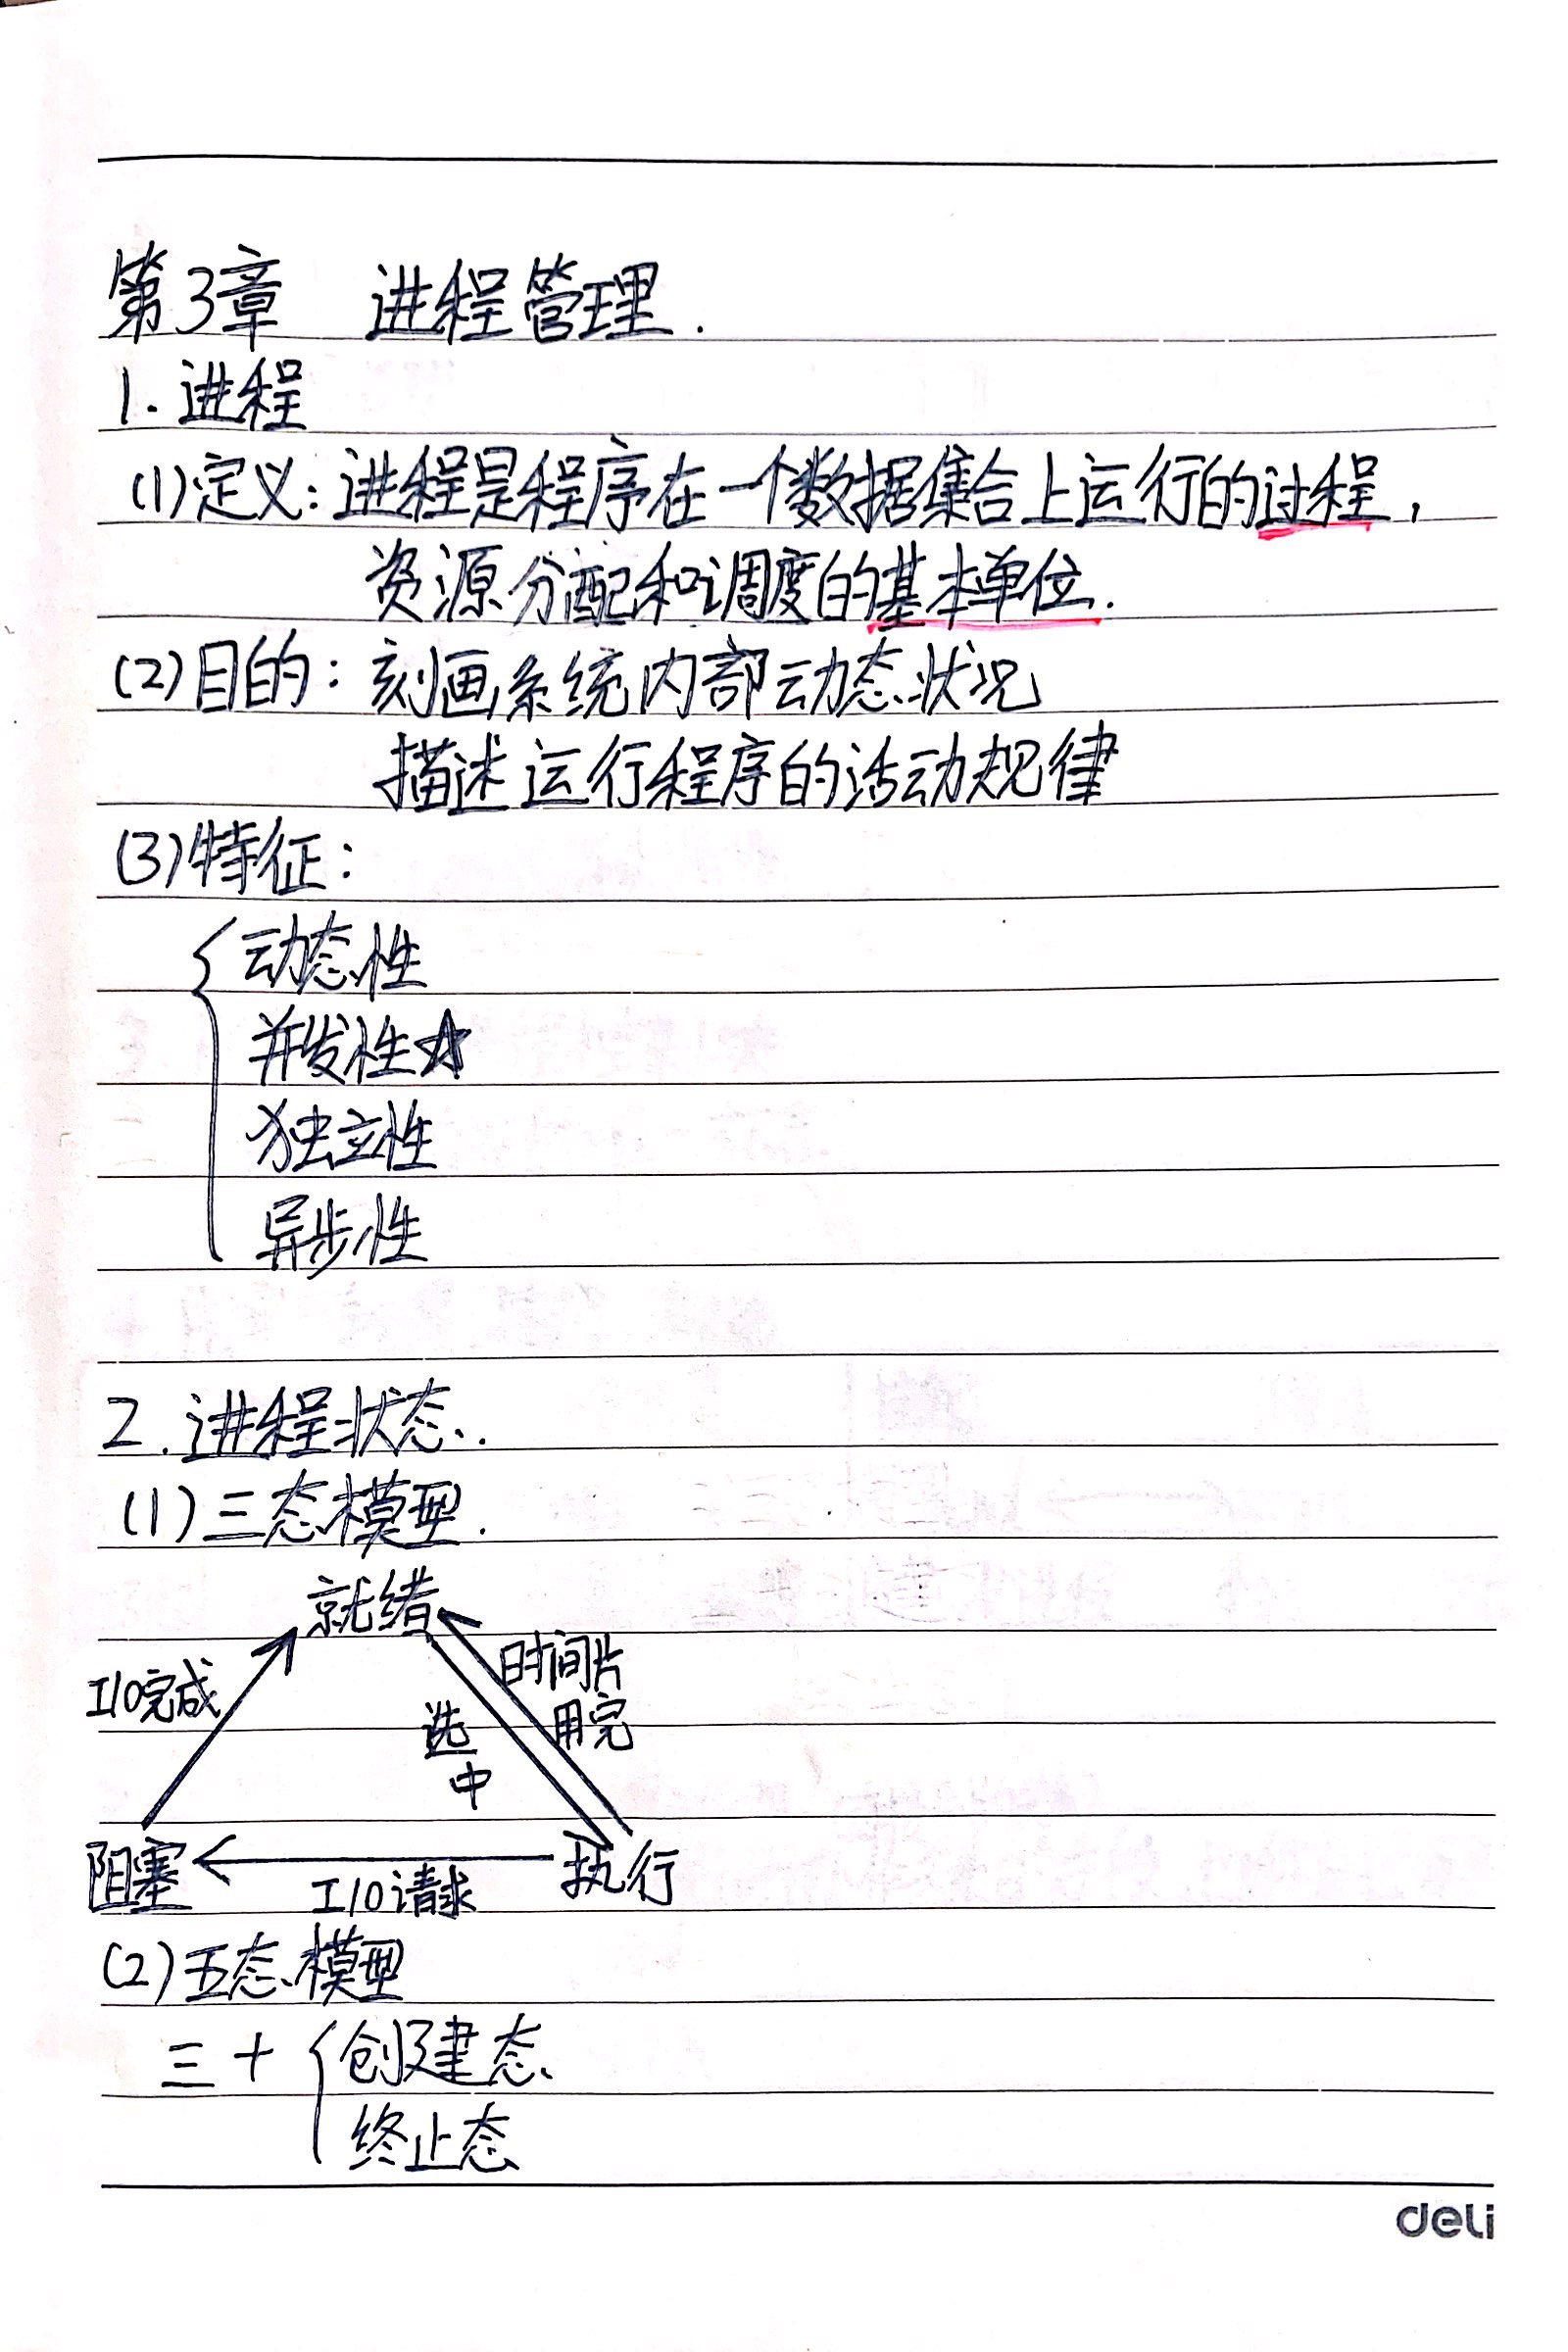 第3章 进程管理.
1. 进程
(1)定义: 进程是程序在一个数据集合上运行的过程,
资源分配和调度的基本单位.
(2)目的: 刻画系统内部动态状况
描述运行程序的活动规律
(3)特征:
动态性
并发性☆
独立性
异步性
2. 进程状态.
(1)三态模型.
就绪
I/O完成
时间片
用完
选
中
阻塞
执行
I/O请求
(2)五态模型
三 + { 创建态
终止态
deli